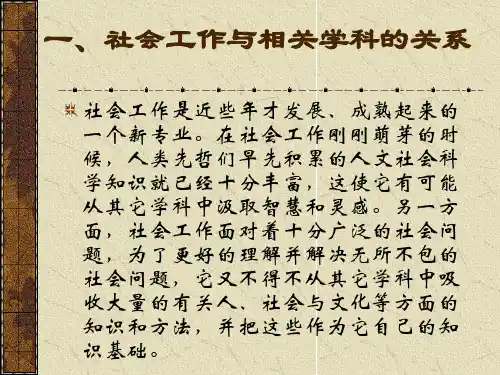 一、社会工作与相关学科的关系
社会工作是近些年才发展、成熟起来的
一个新专业。在社会工作刚刚萌芽的时
候，人类先哲们早先积累的人文社会科
学知识就已经十分丰富，这使它有可能
从其它学科中汲取智慧和灵感。另一方
面，社会工作面对着十分广泛的社会问
题，为了更好的理解并解决无所不包的
社会问题，它又不得不从其它学科中吸
收大量的有关人、社会与文化等方面的
知识和方法，并把这些作为它自己的知
识基础。